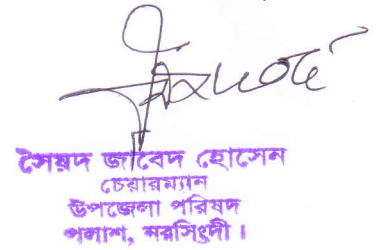 সৈয়দ জাবেদ হোসেন
চেয়ারম্যান
উপজেলা পরিষদ
পলাশ, নরসিংদী।